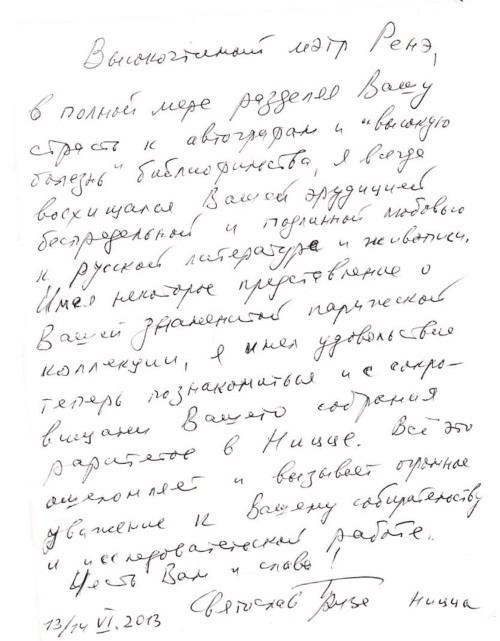 Высокочтимый мэтр Ренэ,
в полной мере разделяя Вашу
страсть к автографам и "высокую
болезнь" библиофильства, я всегда
восхищался Вашей эрудицией
беспредельной и подлинной любовью
к русской литературе и живописи.
Имея некоторое представление о
Вашей знаменитой парижской
коллекции, я имел удовольствие
теперь познакомиться и с сокро-
вищами Вашего собрания
раритетов в Ницце. Всё это
ошеломляет и вызывает огромное
уважение к Вашему собирательству
и исследовательской работе.
Честь Вам и слава!
Святослав Бэлза Ницца
13/14 VI. 2013